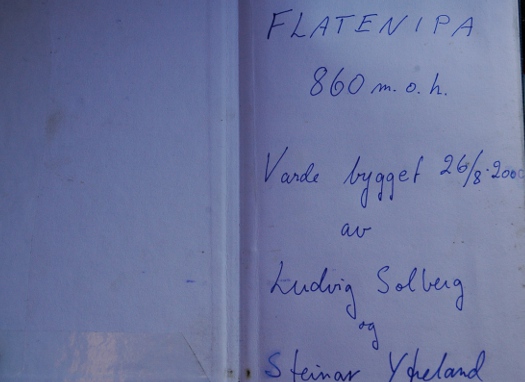 FLATENIPA
860 m.o.h.
Varde bygget 26/8-2000
av
Ludvig Solberg
og
Steinar Ytreland